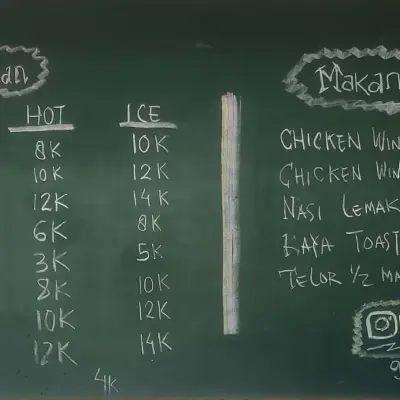 an
HOT ICE
8K 10K
10K 12K
12K 14K
6K 8K
3K 5K
8K 10K
10K 12K
12K 14K
4K
Makan
CHICKEN WIN
CHICKEN WIN
NASI LEMAK
KAYA TOAST
TELOR 1/2 MA